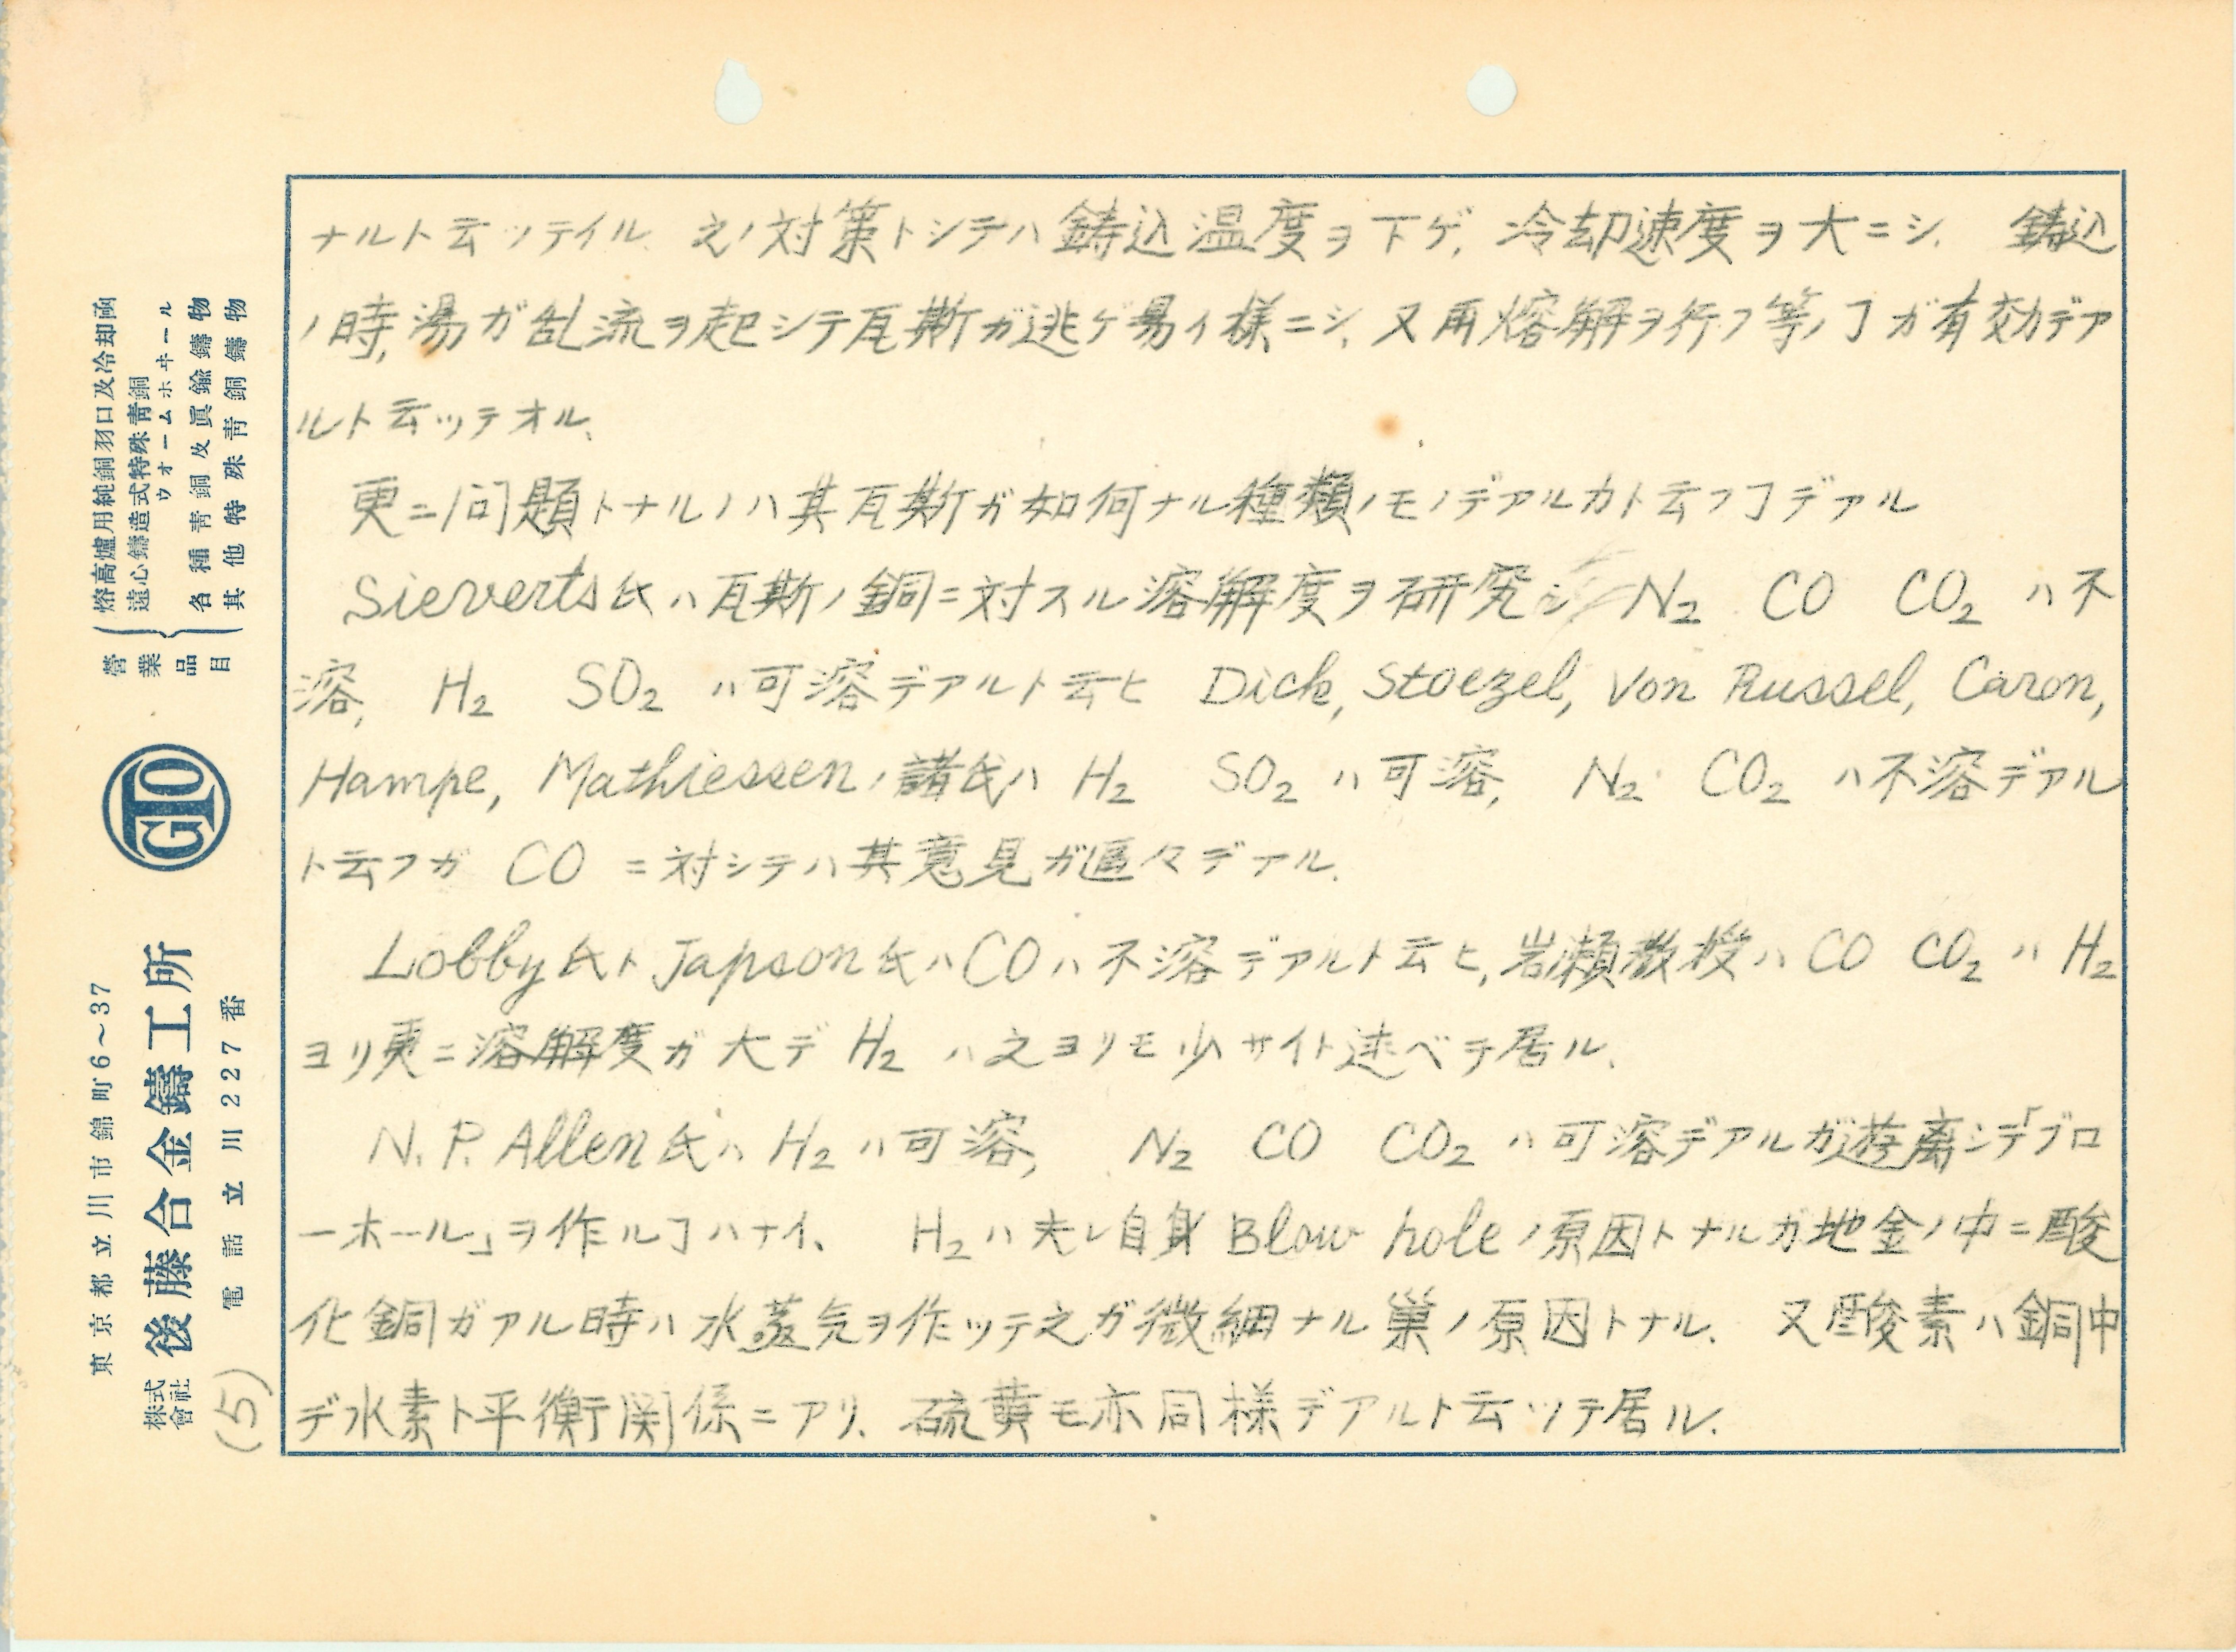 ナルト云ッテイル 之ノ対策トシテハ鋳込温度ヲ下ゲ、冷却速度ヲ大ニシ、鋳込
ノ時、湯ガ乱流ヲ起シテ瓦斯ガ逃ゲ易イ様ニシ、又再熔解ヲ行フ等ノヿガ有効デア
ルト云ッテオル、
更ニ問題トナルノハ其瓦斯ガ如何ナル種類ノモノデアルカト云フヿデアル
Sieverts氏ハ瓦斯ノ銅ニ対スル溶解度ヲ研究シ N₂ CO CO₂ ハ不
溶、H₂ SO₂ ハ可溶デアルト云ヒ Dick, Stoezel, Von Russel, Caron,
Hampe, Mathiessenノ諸氏ハ H₂ SO₂ ハ可溶、N₂ CO₂ ハ不溶デアル
ト云フガ CO ニ対シテハ其意見ガ區々デアル.
Lobby氏ト Japson氏ハCOハ不溶デアルト云ヒ、岩瀬教授ハ CO CO₂ ハ H₂
ヨリ更ニ溶解度ガ大デ H₂ ハ之ヨリモ少サイト述ベテ居ル.
N. P. Allen氏ハ H₂ ハ可溶、N₂ CO CO₂ ハ可溶デアルガ遊離シテ「ブロ
ーホール」ヲ作ルヿハナイ、H₂ ハ夫レ自身 Blow holeノ原因トナルガ地金ノ中ニ酸
化銅ガアル時ハ水蒸気ヲ作ッテ之ガ微細ナル巣ノ原因トナル. 又酸素ハ銅中
デ水素ト平衡関係ニアリ、硫黄モ亦同様デアルト云ッテ居ル.
營業品目
熔高爐用純銅羽口及冷却函
遠心鑄造式特殊青銅ウォームホヰール
各種青銅及眞鍮鑄物
其他特殊青銅鑄物
GTO
東京都立川市錦町6～37
株式會社 後藤合金鑄工所
電話立川227番
(5)